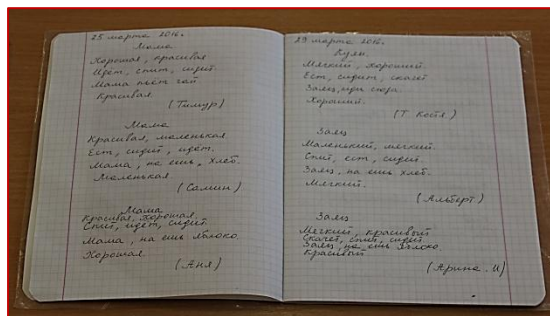 25 марта 2016г.
Мама
Хорошая, красивая
Идёт, спит, сидит.
Мама пьёт чай.
Красивая.
(Тимур)
Мама
Красивая, маленькая.
Ест, сидит, идёт.
Мама, на ешь, хлеб.
Маленькая.
(Самин)
Мама
Красивая, хорошая.
Спит, идёт, сидит.
Мама, на ешь яблоко.
Хорошая.
(Аня)
29 марта 2016г.
Мягкий, хороший.
Ест, сидит, скачет
Заяц, иди сюда.
Хороший.
(Т Костя)
Заяц
Маленький, мягкий.
Спит, ест, сидит.
Заяц, на ешь хлеб.
Мягкий.
(Альберт)
Заяц
Мягкий, красивый
Скачет, спит, сидит
Заяц, на ешь яблоко.
Красивый
(Арина. И)